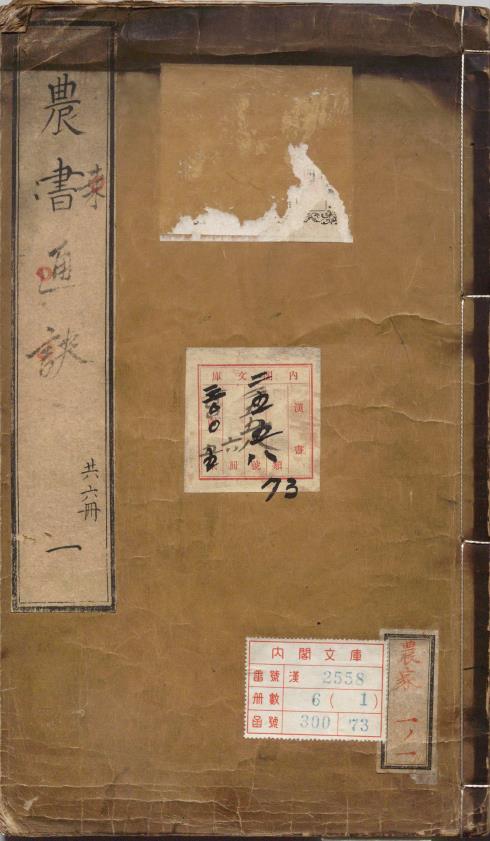 農書通訣
共六冊
一
内閣文庫
漢書
二五五八
六
三〇〇
73
内閣文庫
番號 漢 2558
冊數 6 ( 1 )
函號 300 73
農家
一ノ一